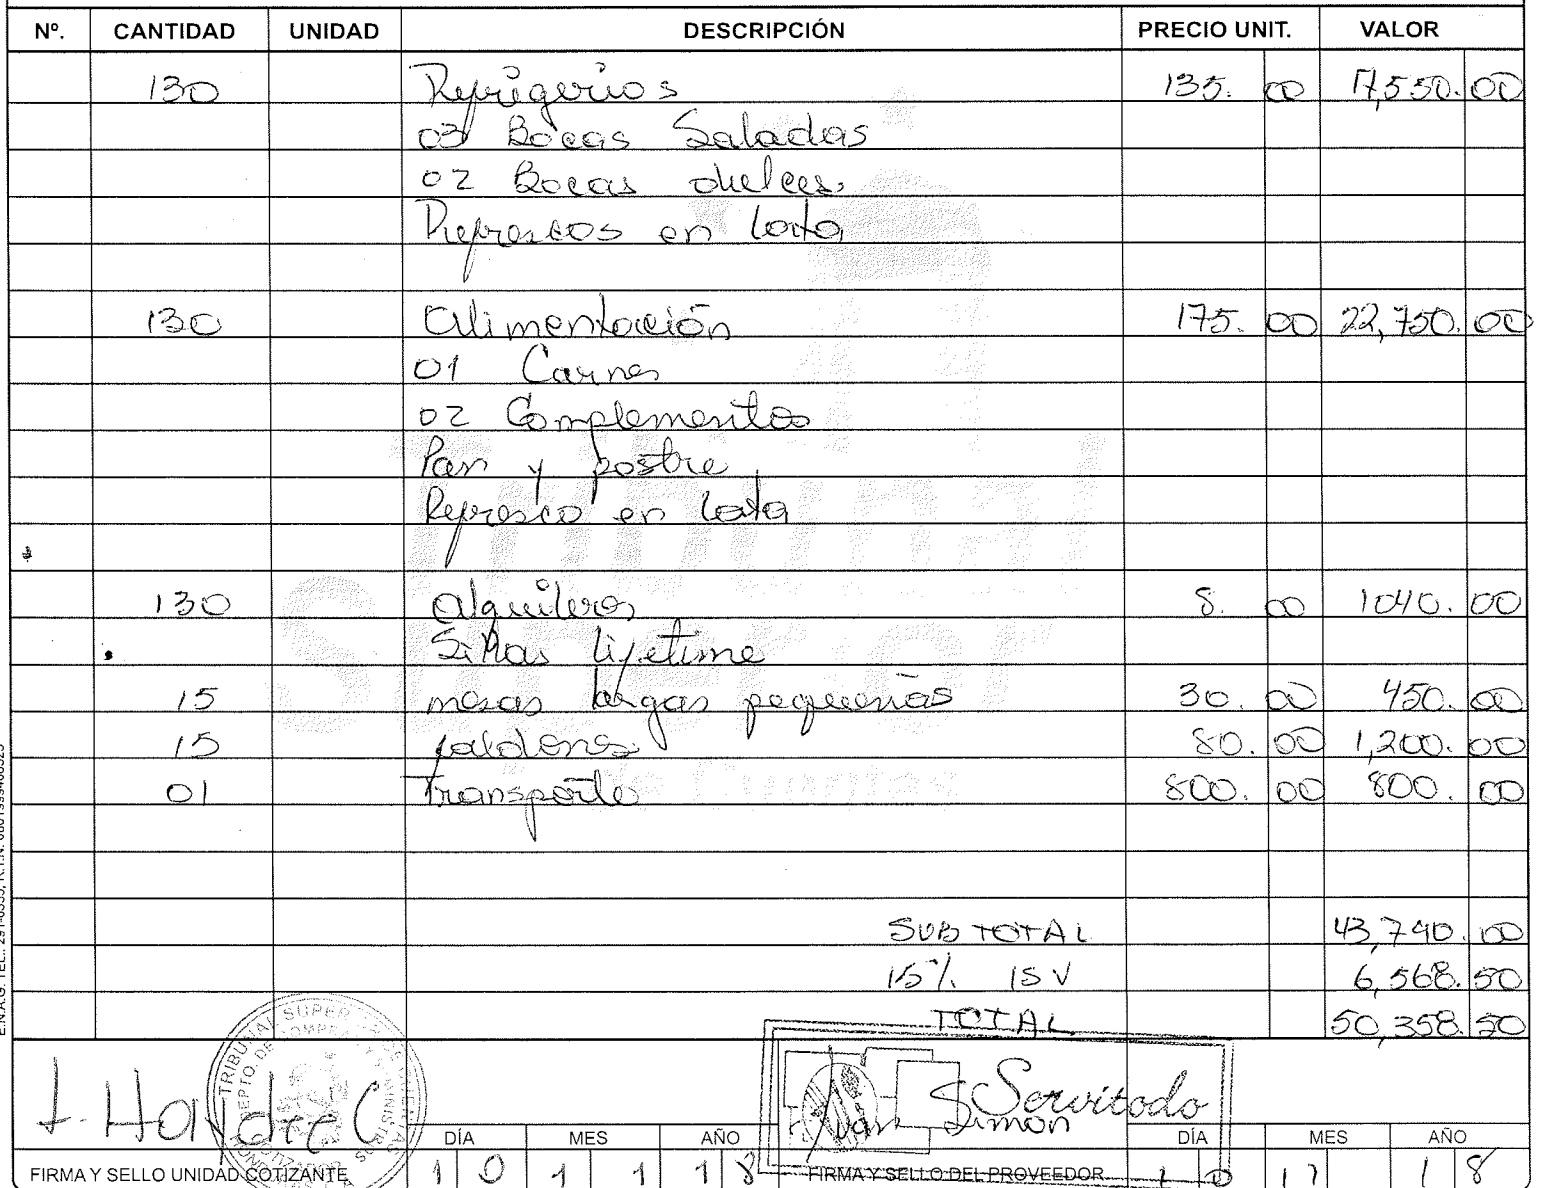 Nº. CANTIDAD UNIDAD DESCRIPCIÓN PRECIO UNIT. VALOR
130 Refrigerios 135. 00 17,550. 00
03 Bocas Saladas
02 Bocas dulces.
Refrescos en lata
130 Alimentación 175. 00 22,750. 00
01 Carnes
02 Complementos
Pan y postre
Refresco en lata
130 alquileres 8. 00 1040. 00
Sillas lifetime
15 mesas largas pequeñas 30. 00 450. 00
15 faldones 80. 00 1,200. 00
01 Transporte 800. 00 800. 00
SUB TOTAL 43,790. 00
15% ISV 6,568. 50
TOTAL 50,358. 50
Tribunal Superior de Cuentas
Servitodo
Simon
DÍA MES AÑO DÍA MES AÑO
FIRMA Y SELLO UNIDAD COTIZANTE 10 11 18 FIRMA Y SELLO DEL PROVEEDOR 10 11 18